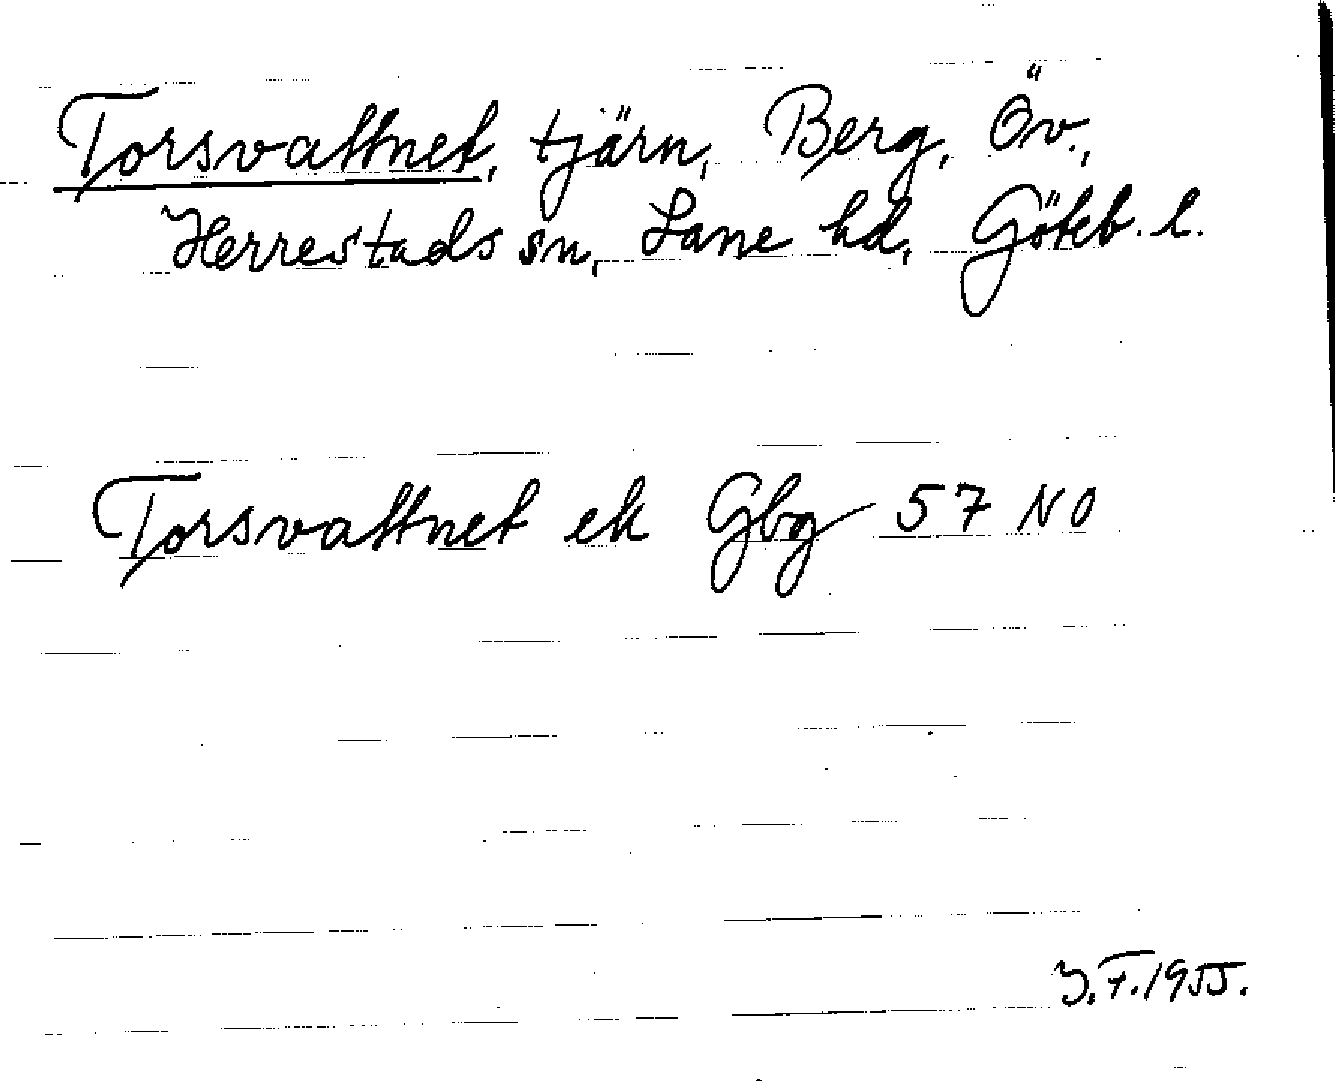 Torsvattnet, tjärn, Berg, Öv.,
Herrestads sn, Lane hd, Göteb. l.
Torsvattnet ek Gbg 57 NO
J.F. 1955.